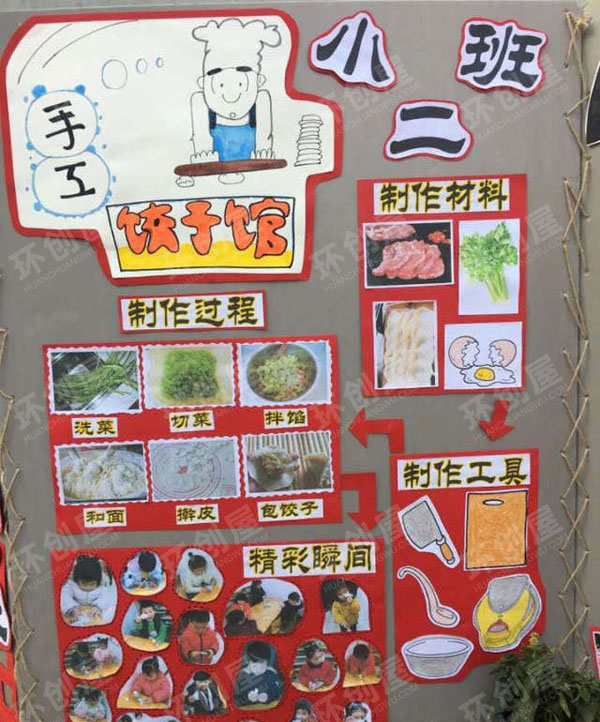 手工
饺子馆
小班
二
制作材料
制作过程
洗菜 切菜 拌馅
和面 擀皮 包饺子
制作工具
精彩瞬间
环创屋
HUANCHUANGWU.COM